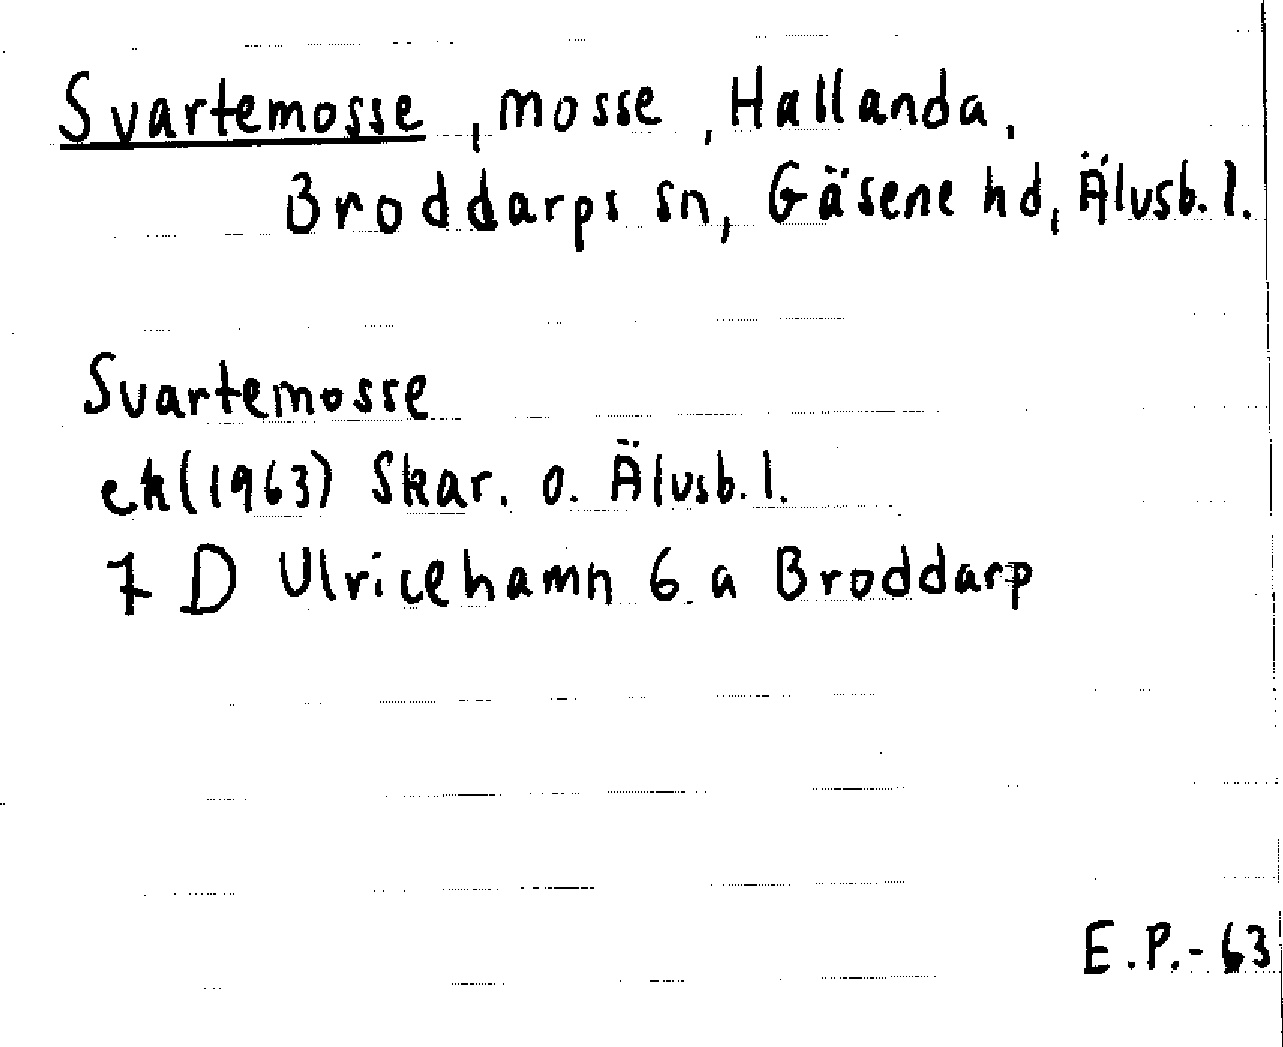 Svartemosse, mosse, Hallanda,
Broddarps sn, Gäsene hd, Älvsb. l.
Svartemosse
ek(1963) Skar. o. Älvsb. l.
7 D Ulricehamn 6 a Broddarp
E.P.-63